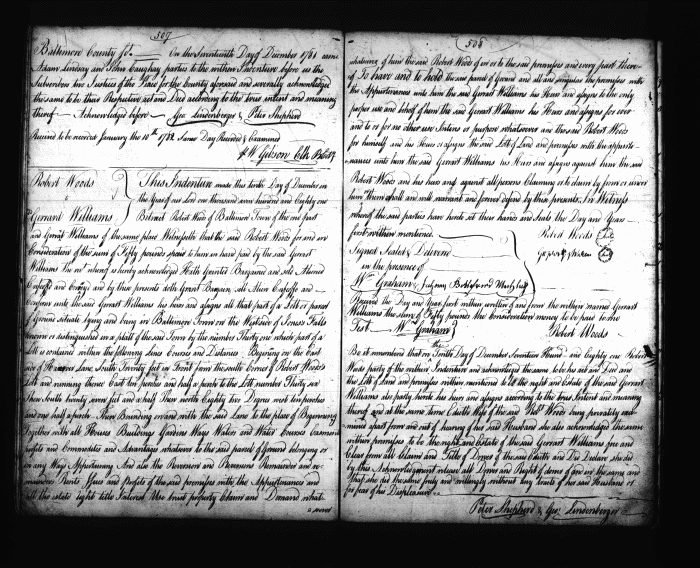 507
Baltimore County sc. On the Seventeenth Day of December 1781 came
Adam Lindsay and John Caughay parties to the within Indenture before us the
Subscribers two Justices of the Peace for the County aforesaid and severally acknowledged
the same to be their Respective act and Deed according to the true intent and meaning
thereof Acknowledged before Geo Lindenberger & Peter Shepherd
Received to be recorded January the 10th 1782 Same Day Recorded & Examined
W Gibson Clk
Robert Woods
to
Gerrard Williams
This Indenture made this tenth Day of December in
the Year of our Lord one thousand seven hundred and Eighty one
Between Robert Woods of Baltimore Town of the one part
and Gerrart Williams of the same place Witnesseth that the said Robert Woods for and in
Consideration of the sum of Fifty pounds to him in hand paid by the said Gerrart
Williams the receipt whereof is hereby acknowledged Hath Granted Bargained and sold Aliened
and by these presents doth Grant Bargain sell Alien
Confirm unto the said Gerrart Williams his heirs and assigns all that part of a Lott or parcel
of Ground situate lying and being in Baltimore Town on the West side of Jones's Falls
known or distinguished in a plat of the said Town by the number Thirty one which part of a
Lott is contained within the following Lines Courses and Distances Beginning on the East
side of Lane, South Twenty feet in Front from the South Corner of Robert Woods's
Lott and running thence East ten perches and half a perch to the Lott number Thirty six
then South twenty feet and a half then north Eighty two Degrees west ten perches
and one half a perch Then Bounding on and with the said Lane to the place of Beginning
Together with all Houses Buildings Gardens Ways Waters and Water Courses
profits and Commodities and Advantages whatever to the said parcel of Ground belonging or
in any Ways Appertaining And also the Reversion and Reversions Remainder and re-
mainders Rents Issues and profits of the said premises with the Appurtenances and
all the estate right title Interest Use trust property Claim and Demand what-
508
whatsoever of him the said Robert Woods of in or to the said premises and every part there-
of To have and to hold the said parcel of Ground and all and singular the premises with
the Appurtenances unto him the said Gerrart Williams his Heirs and assigns to the only
proper use and behoof of him the said Gerrart Williams his Heirs and assigns for ever
and to or for no other use Intent or purpose whatsoever and the said Robert Woods
for himself and his Heirs the said Lott of Land and premises with the appurte-
nances unto him the said Gerrart Williams his Heirs and assigns against him the said
Robert Woods and his heirs and against all persons Claiming or to claim by from or under
him them shall and will warrant and forever defend by these presents In Witness
whereof the said parties have hereto set their hands and Seals the Day and Year
first within mentioned
Signed Sealed & Delivered
in the presence of
Robert Woods
Wm Graham
Received the Day and Year first within written of and from the within named Gerrart
Williams the sum of Fifty pounds the Consideration money to be paid to me
Test Wm Graham Robert Woods
Be it remembered that on Tenth Day of December Seventeen Hund and Eighty one Robert
Woods party of the within Indenture and acknowledged the same to be his act and Deed and
the Lott of Land and premises within mentioned to be the right and Estate of the said Gerrart
Williams also party hereto his heirs and assigns according to the true Intent and meaning
thereof and at the same time Edith Wife of the said Robt Woods being privately exa-
mined apart from and out of hearing of her said Husband she also acknowledged the same
within premises to be the right and Estate of the said Gerrart Williams free and
Clear from all Claim and Title of Dower of the said Edith and Do Declare she did
by this Acknowledgment release all Dower and Right of dower of in or to the same and
That she did the same freely and willingly without any threats of her said Husband or
for fear of his Displeasure
Peter Shepherd & Geo Lindenberger